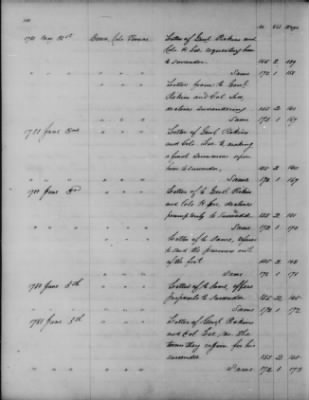 No. Vol. Page
1781 May 31st Brown, Col. Thomas Letter of Genl Pickens and
Col. H Lee requesting him
to surrender. 165 2 139
" " " Same 172 1 168
" " " Letter from to Genl
Pickens and Col. Lee
declines surrendering 165 2 140
" " " Same 172 1 169
1781 June 2nd " " " Letter of Genl Pickens
and Col. Lee to making
a final summons upon
him to surrender, 165 2 140
" " " Same 172 1 169
1781 June 3rd " " " Letter of to Genl Pickens
and Col. H Lee declines
to surrender 165 2 141
" " " Same 172 1 170
" " " Letter of to Same, refuses
to send the prisoners out
of the fort 165 2
" " " Same 172 1 171
1781 June 5th " " " Letter of to Same, offers
proposals to surrender 165 2
" " " Same 172 1 172
1781 June 5th " " " Letter of Genl Pickens
and Col. Lee, on the
terms they for his
surrender 165 2
" " " Same 172 1 173